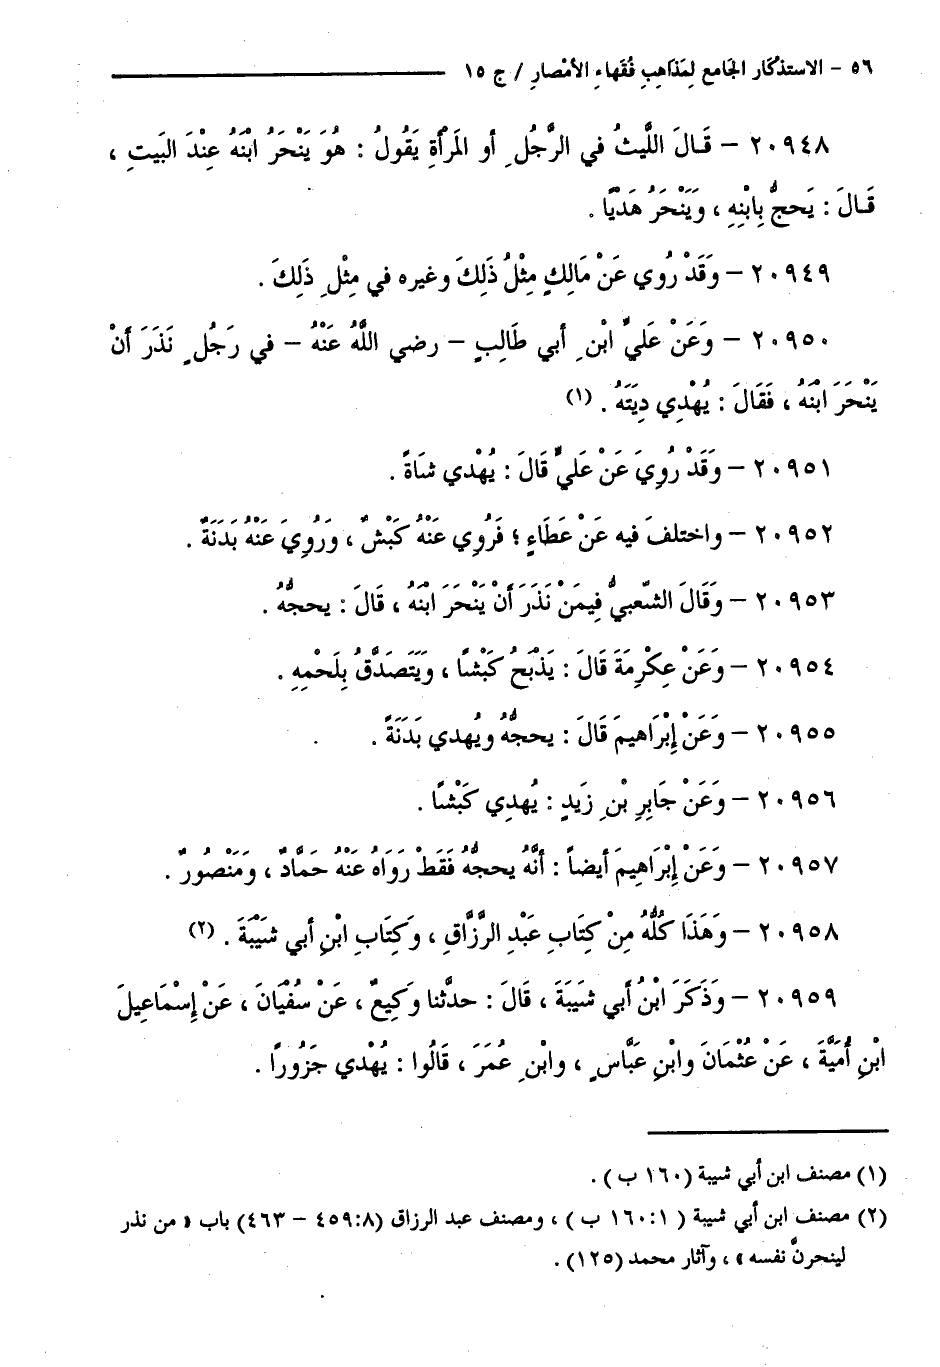 ٥٦ – الاستذكار الجامع لِمَذَاهِبِ فُقَهاءِ الأمْصارِ / ج ١٥
٢٠٩٤٨ – قَالَ اللَّيثُ في الرَّجُلِ أو المَرْأةِ يَقُولُ : هُوَ يَنْحَرُ ابْنَهُ عِنْدَ البَيتِ ،
قَالَ : يَحجُّ بِابْنِهِ ، وَيَنْحَرُ هَدْيًا .
٢٠٩٤٩ – وَقَدْ رُوي عَنْ مَالِكٍ مِثْلُ ذَلِكَ وغيره في مِثْلِ ذَلِكَ .
٢٠٩٥٠ – وَعَنْ عَليِّ ابْنِ أبي طَالِبٍ – رضي اللَّهُ عَنْهُ – في رَجُلٍ نَذَرَ أنْ
يَنْحَرَ ابْنَهُ ، فَقَالَ : يُهْدِي دِيَتَهُ . (١)
٢٠٩٥١ – وَقَدْ رُوِيَ عَنْ عَليٍّ قَالَ : يُهْدي شاةً .
٢٠٩٥٢ – واختلفَ فيه عَنْ عَطَاءٍ ؛ فَرُوِي عَنْهُ كَبْشٌ ، وَرُوِيَ عَنْهُ بَدَنَةٌ .
٢٠٩٥٣ – وَقَالَ الشّعبيُّ فِيمَنْ نَذَرَ أنْ يَنْحَرَ ابْنَهُ ، قَالَ : يحجُّهُ .
٢٠٩٥٤ – وَعَنْ عِكْرِمَةَ قَالَ : يَذْبَحُ كَبْشًا ، وَيَتَصَدَّقُ بِلَحْمِهِ .
٢٠٩٥٥ – وَعَنْ إِبْرَاهيمَ قَالَ : يحجُّهُ ويُهدي بَدَنَةً .
٢٠٩٥٦ – وَعَنْ جَابِرِ بْنِ زَيدٍ : يُهدِي كَبْشًا .
٢٠٩٥٧ – وَعَنْ إِبْرَاهِيمَ أيضاً : أنَّهُ يحجُّهُ فَقَطْ رَوَاهُ عَنْهُ حَمَّادٌ ، وَمَنْصُورٌ .
٢٠٩٥٨ – وَهَذَا كُلُّهُ مِنْ كِتَابِ عَبْدِ الرَّزَّاقِ ، وَكِتَابِ ابْنِ أبي شَيْبَةَ . (٢)
٢٠٩٥٩ – وَذَكَرَ ابْنُ أبي شَيَبَةَ ، قَالَ : حدَّثنا وَكِيعٌ ، عَنْ سُفْيَانَ ، عَنْ إِسْمَاعِيلَ
ابْنِ أُمَيَّةَ ، عَنْ عُثْمَانَ وابْنِ عَبَّاسٍ ، وابْنِ عُمَرَ ، قَالُوا : يُهْدي جَزُورًا .
(١) مصنف ابن أبي شيبة (١٦٠ ب ) .
(٢) مصنف ابن أبي شيبة ( ١٦٠:١ ب ) ، ومصنف عبد الرزاق (٤٥٩:٨ – ٤٦٣) باب « من نذر
لينحرنَّ نفسه » ، وآثار محمد (١٢٥) .